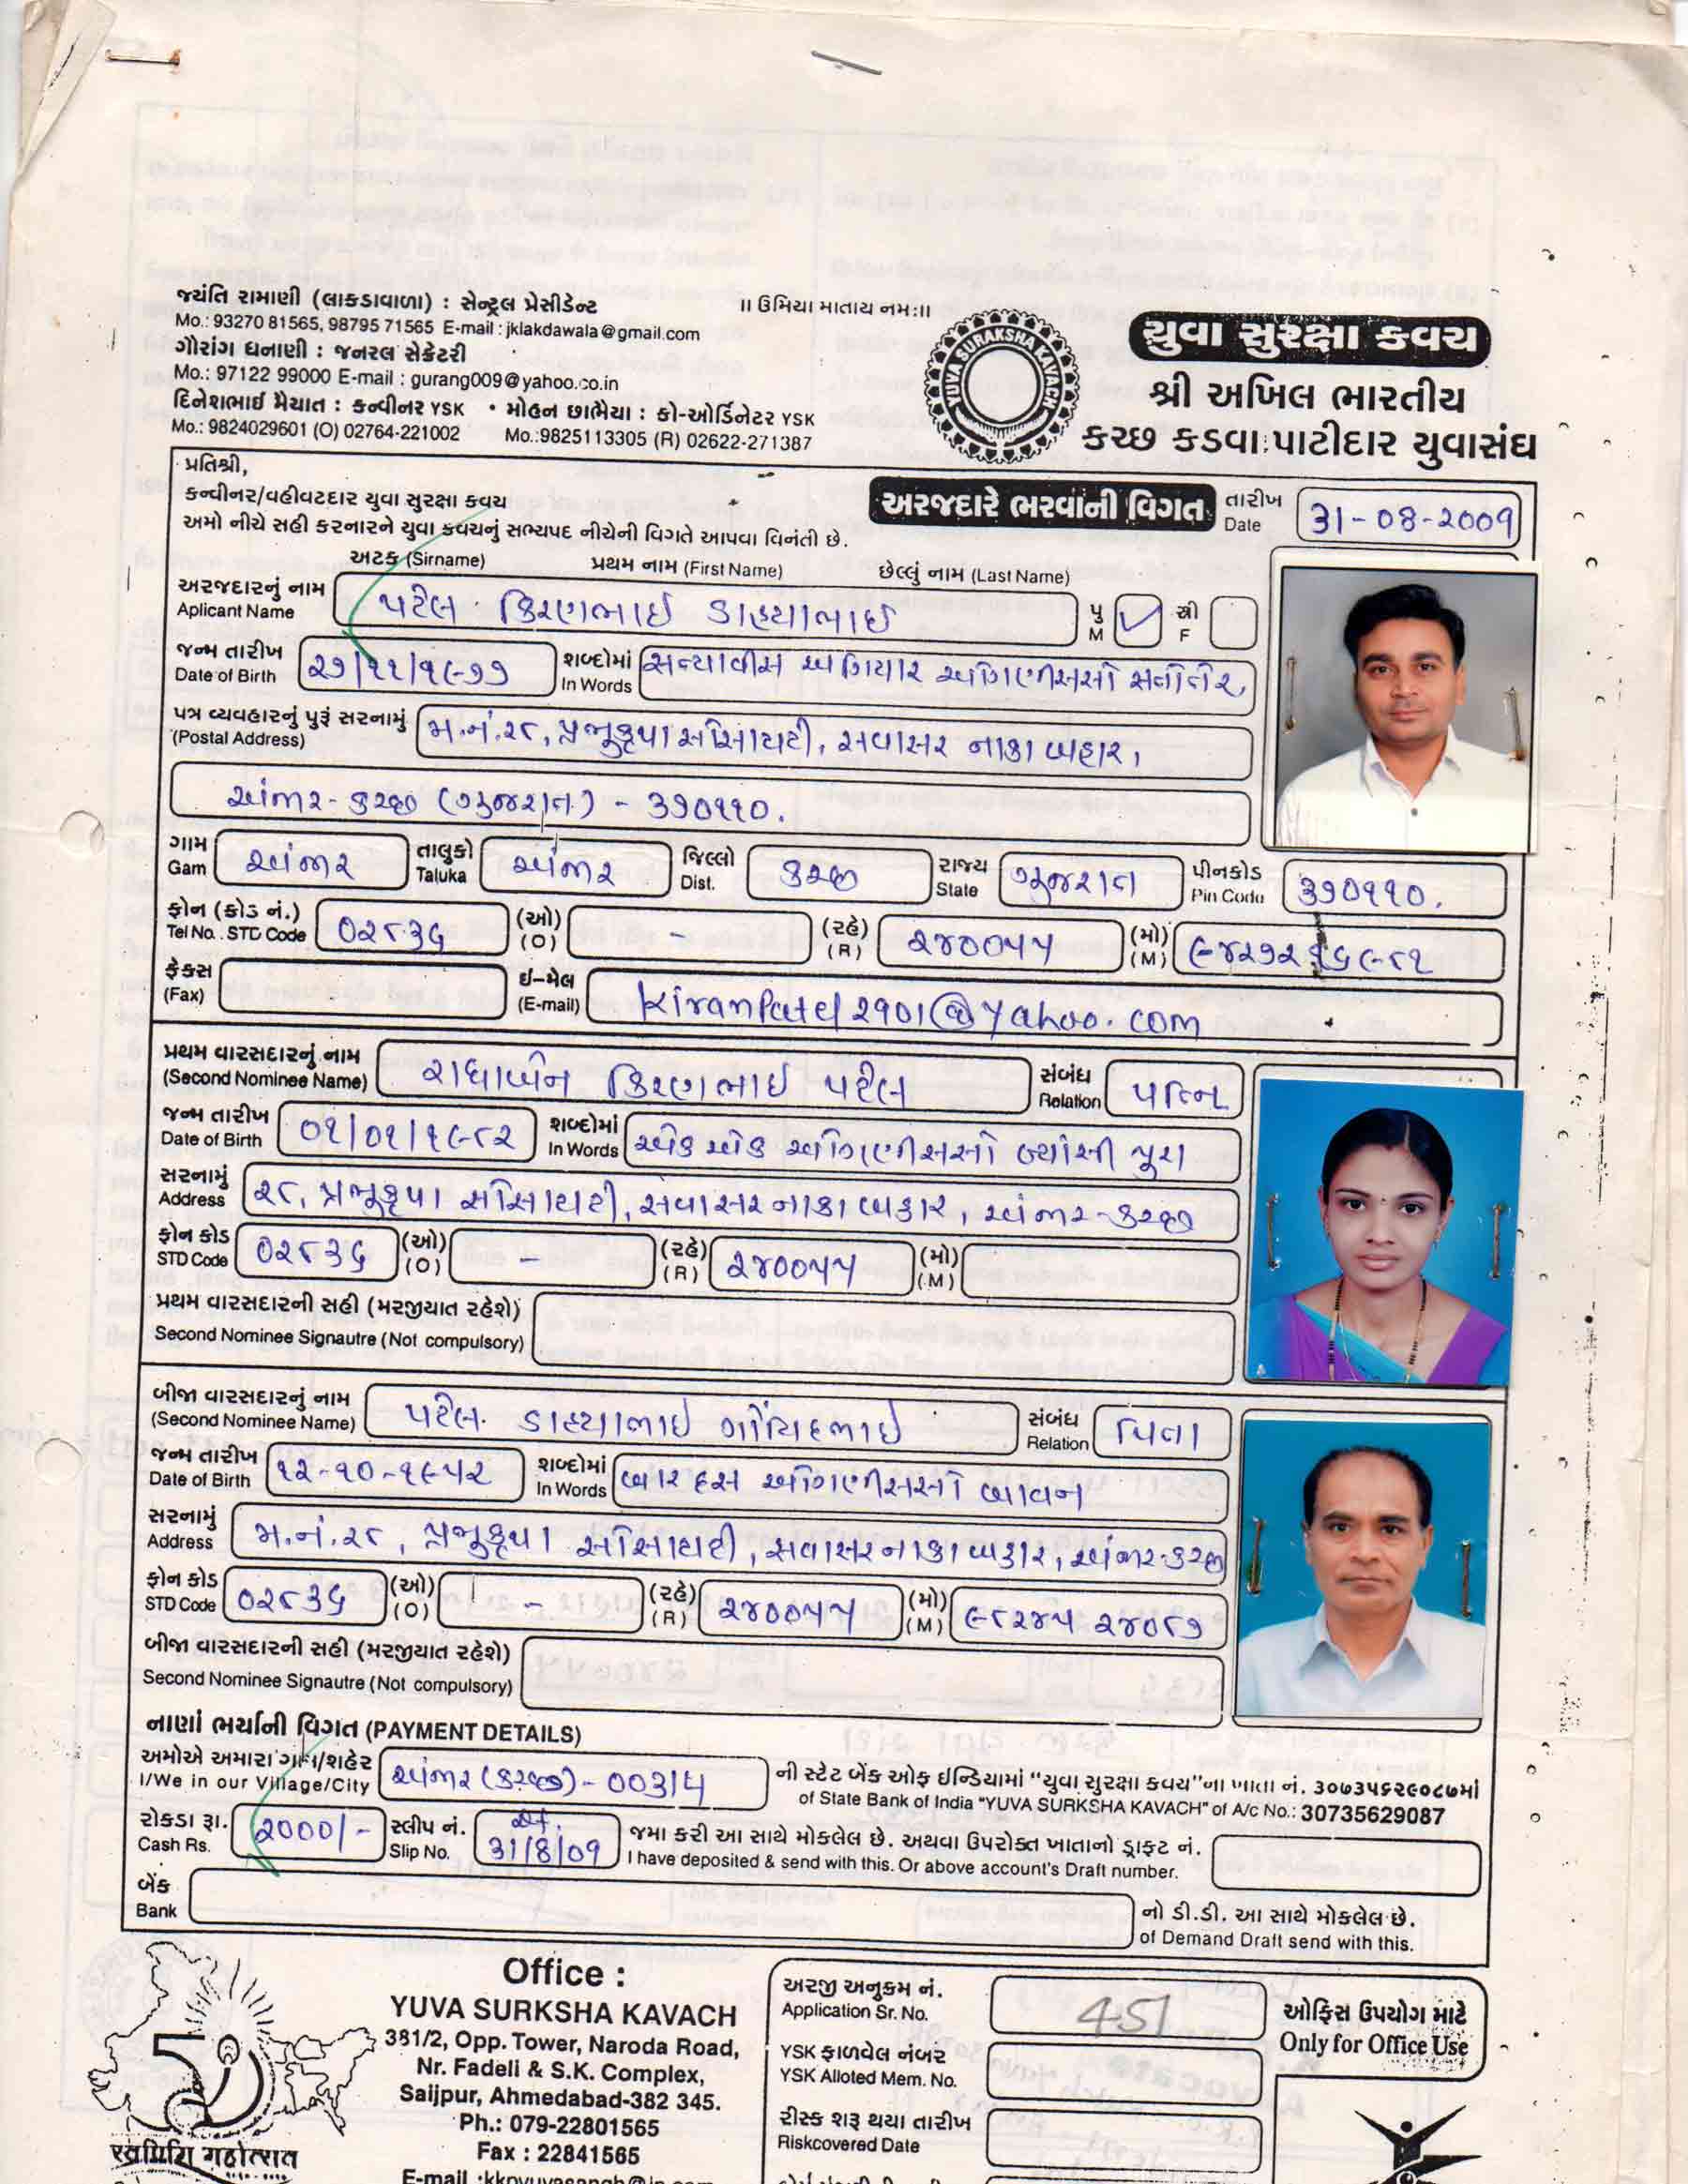 જયંતિ રામાણી (લાકડાવાળા) : સેન્ટ્રલ પ્રેસીડેન્ટ
Mo.: 93270 81565, 98795 71565 E-mail : jklakdawala@gmail.com
ગૌરાંગ ધનાણી : જનરલ સેક્રેટરી
Mo.: 97122 99000 E-mail : gurang009@yahoo.co.in
દિનેશભાઈ મૈયાત : કન્વીનર YSK • મોહન છાભૈયા : કો-ઓર્ડિનેટર YSK
Mo.: 9824029601 (O) 02764-221002 Mo.:9825113305 (R) 02622-271387
।। ઉમિયા માતાય નમ:।।
YUVA SURAKSHA KAVACH
યુવા સુરક્ષા કવચ
શ્રી અખિલ ભારતીય
કચ્છ કડવા પાટીદાર યુવાસંઘ
પ્રતિશ્રી,
કન્વીનર/વહીવટદાર યુવા સુરક્ષા કવચ
અમો નીચે સહી કરનારને યુવા કવચનું સભ્યપદ નીચેની વિગતે આપવા વિનંતી છે.
અરજદારે ભરવાની વિગત તારીખ Date 31-08-2009
અટક (Sirname) પ્રથમ નામ (First Name) છેલ્લું નામ (Last Name)
અરજદારનું નામ Aplicant Name પટેલ કિરણભાઈ ડાહ્યાભાઈ પુ M ✓ સ્રી F
જન્મ તારીખ Date of Birth ૨૭/૧૧/૧૯૭૭ શબ્દોમાં In Words સત્યાવીસ અગિયાર ઓગણીસસો સત્તોતેર
પત્ર વ્યવહારનું પુરૂં સરનામું (Postal Address) મ.નં.૨૮, પ્રભુકૃપા સોસાયટી, સવાસર નાકા બહાર,
અંજાર-કચ્છ (ગુજરાત) - ૩૭૦૧૧૦.
ગામ Gam અંજાર તાલુકો Taluka અંજાર જિલ્લો Dist. કચ્છ રાજ્ય State ગુજરાત પીનકોડ Pin Code ૩૭૦૧૧૦.
ફોન (કોડ નં.) Tel No. STD Code ૦૨૮૩૬ (ઓ) (O) - (રહે) (R) ૨૪૦૦૫૫ (મો) (M) ૯૪૨૭૨ ૧૬૯૮૧
ફેક્સ (Fax) ઈ-મેલ (E-mail) kiranpatel2901@yahoo.com
પ્રથમ વારસદારનું નામ (Second Nominee Name) રાધાબેન કિરણભાઈ પટેલ સંબંધ Relation પત્નિ
જન્મ તારીખ Date of Birth ૦૧/૦૧/૧૯૮૨ શબ્દોમાં In Words એક એક ઓગણીસસો બ્યાંસી પુરા
સરનામું Address ૨૮, પ્રભુકૃપા સોસાયટી, સવાસર નાકા બહાર, અંજાર-કચ્છ
ફોન કોડ STD Code ૦૨૮૩૬ (ઓ) (O) - (રહે) (R) ૨૪૦૦૫૫ (મો) (M)
પ્રથમ વારસદારની સહી (મરજીયાત રહેશે)
Second Nominee Signautre (Not compulsory)
બીજા વારસદારનું નામ (Second Nominee Name) પટેલ ડાહ્યાભાઈ ગોવિંદભાઈ સંબંધ Relation પિતા
જન્મ તારીખ Date of Birth ૧૨-૧૦-૧૯૫૨ શબ્દોમાં In Words બાર દસ ઓગણીસસો બાવન
સરનામું Address મ.નં.૨૮, પ્રભુકૃપા સોસાયટી, સવાસર નાકા બહાર, અંજાર-કચ્છ
ફોન કોડ STD Code ૦૨૮૩૬ (ઓ) (O) - (રહે) (R) ૨૪૦૦૫૫ (મો) (M) ૯૮૨૪૫ ૨૪૦૮૭
બીજા વારસદારની સહી (મરજીયાત રહેશે)
Second Nominee Signautre (Not compulsory)
નાણાં ભર્યાની વિગત (PAYMENT DETAILS)
અમોએ અમારા ગામ/શહેર અંજાર (કચ્છ) - ની સ્ટેટ બેંક ઓફ ઇન્ડિયામાં "યુવા સુરક્ષા કવચ"ના ખાતા નં. ૩૦૭૩૫૬૨૯૦૮૭માં
I/We in our Village/City of State Bank of India "YUVA SURKSHA KAVACH" of A/c No.: 30735629087
રોકડા રૂા. Cash Rs. 2000/- સ્લીપ નં. Slip No. 31/8/09 જમા કરી આ સાથે મોકલેલ છે. અથવા ઉપરોક્ત ખાતાનો ડ્રાફ્ટ નં.
I have deposited & send with this. Or above account's Draft number.
બેંક Bank નો ડી.ડી. આ સાથે મોકલેલ છે.
of Demand Draft send with this.
Office :
YUVA SURKSHA KAVACH
381/2, Opp. Tower, Naroda Road,
Nr. Fadeli & S.K. Complex,
Saijpur, Ahmedabad-382 345.
Ph.: 079-22801565
Fax : 22841565
અરજી અનુક્રમ નં. Application Sr. No. 451
YSK ફાળવેલ નંબર YSK Alloted Mem. No.
રીસ્ક શરૂ થયા તારીખ Riskcovered Date
ઓફિસ ઉપયોગ માટે
Only for Office Use